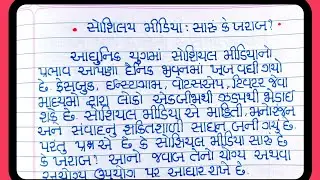 સોશિયલ મીડિયા : સારું કે ખરાબ?
આધુનિક યુગમાં સોશિયલ મીડિયાનો
પ્રભાવ આપણા દૈનિક જીવનમાં ખૂબ વધી ગયો
છે. ફેસબુક, ઇન્સ્ટાગ્રામ, વોટ્સએપ, ટ્વિટર જેવા
માધ્યમો દ્વારા લોકો એકબીજાથી ઝડપથી જોડાઈ
શકે છે. સોશિયલ મીડિયા એ માહિતી, મનોરંજન
અને સંવાદનું શક્તિશાળી સાધન બની ગયું છે.
પરંતુ પ્રશ્ન એ છે કે સોશિયલ મીડિયા સારું છે
કે ખરાબ? આનો જવાબ તેનો યોગ્ય અથવા
અયોગ્ય ઉપયોગ પર આધાર રાખે છે.